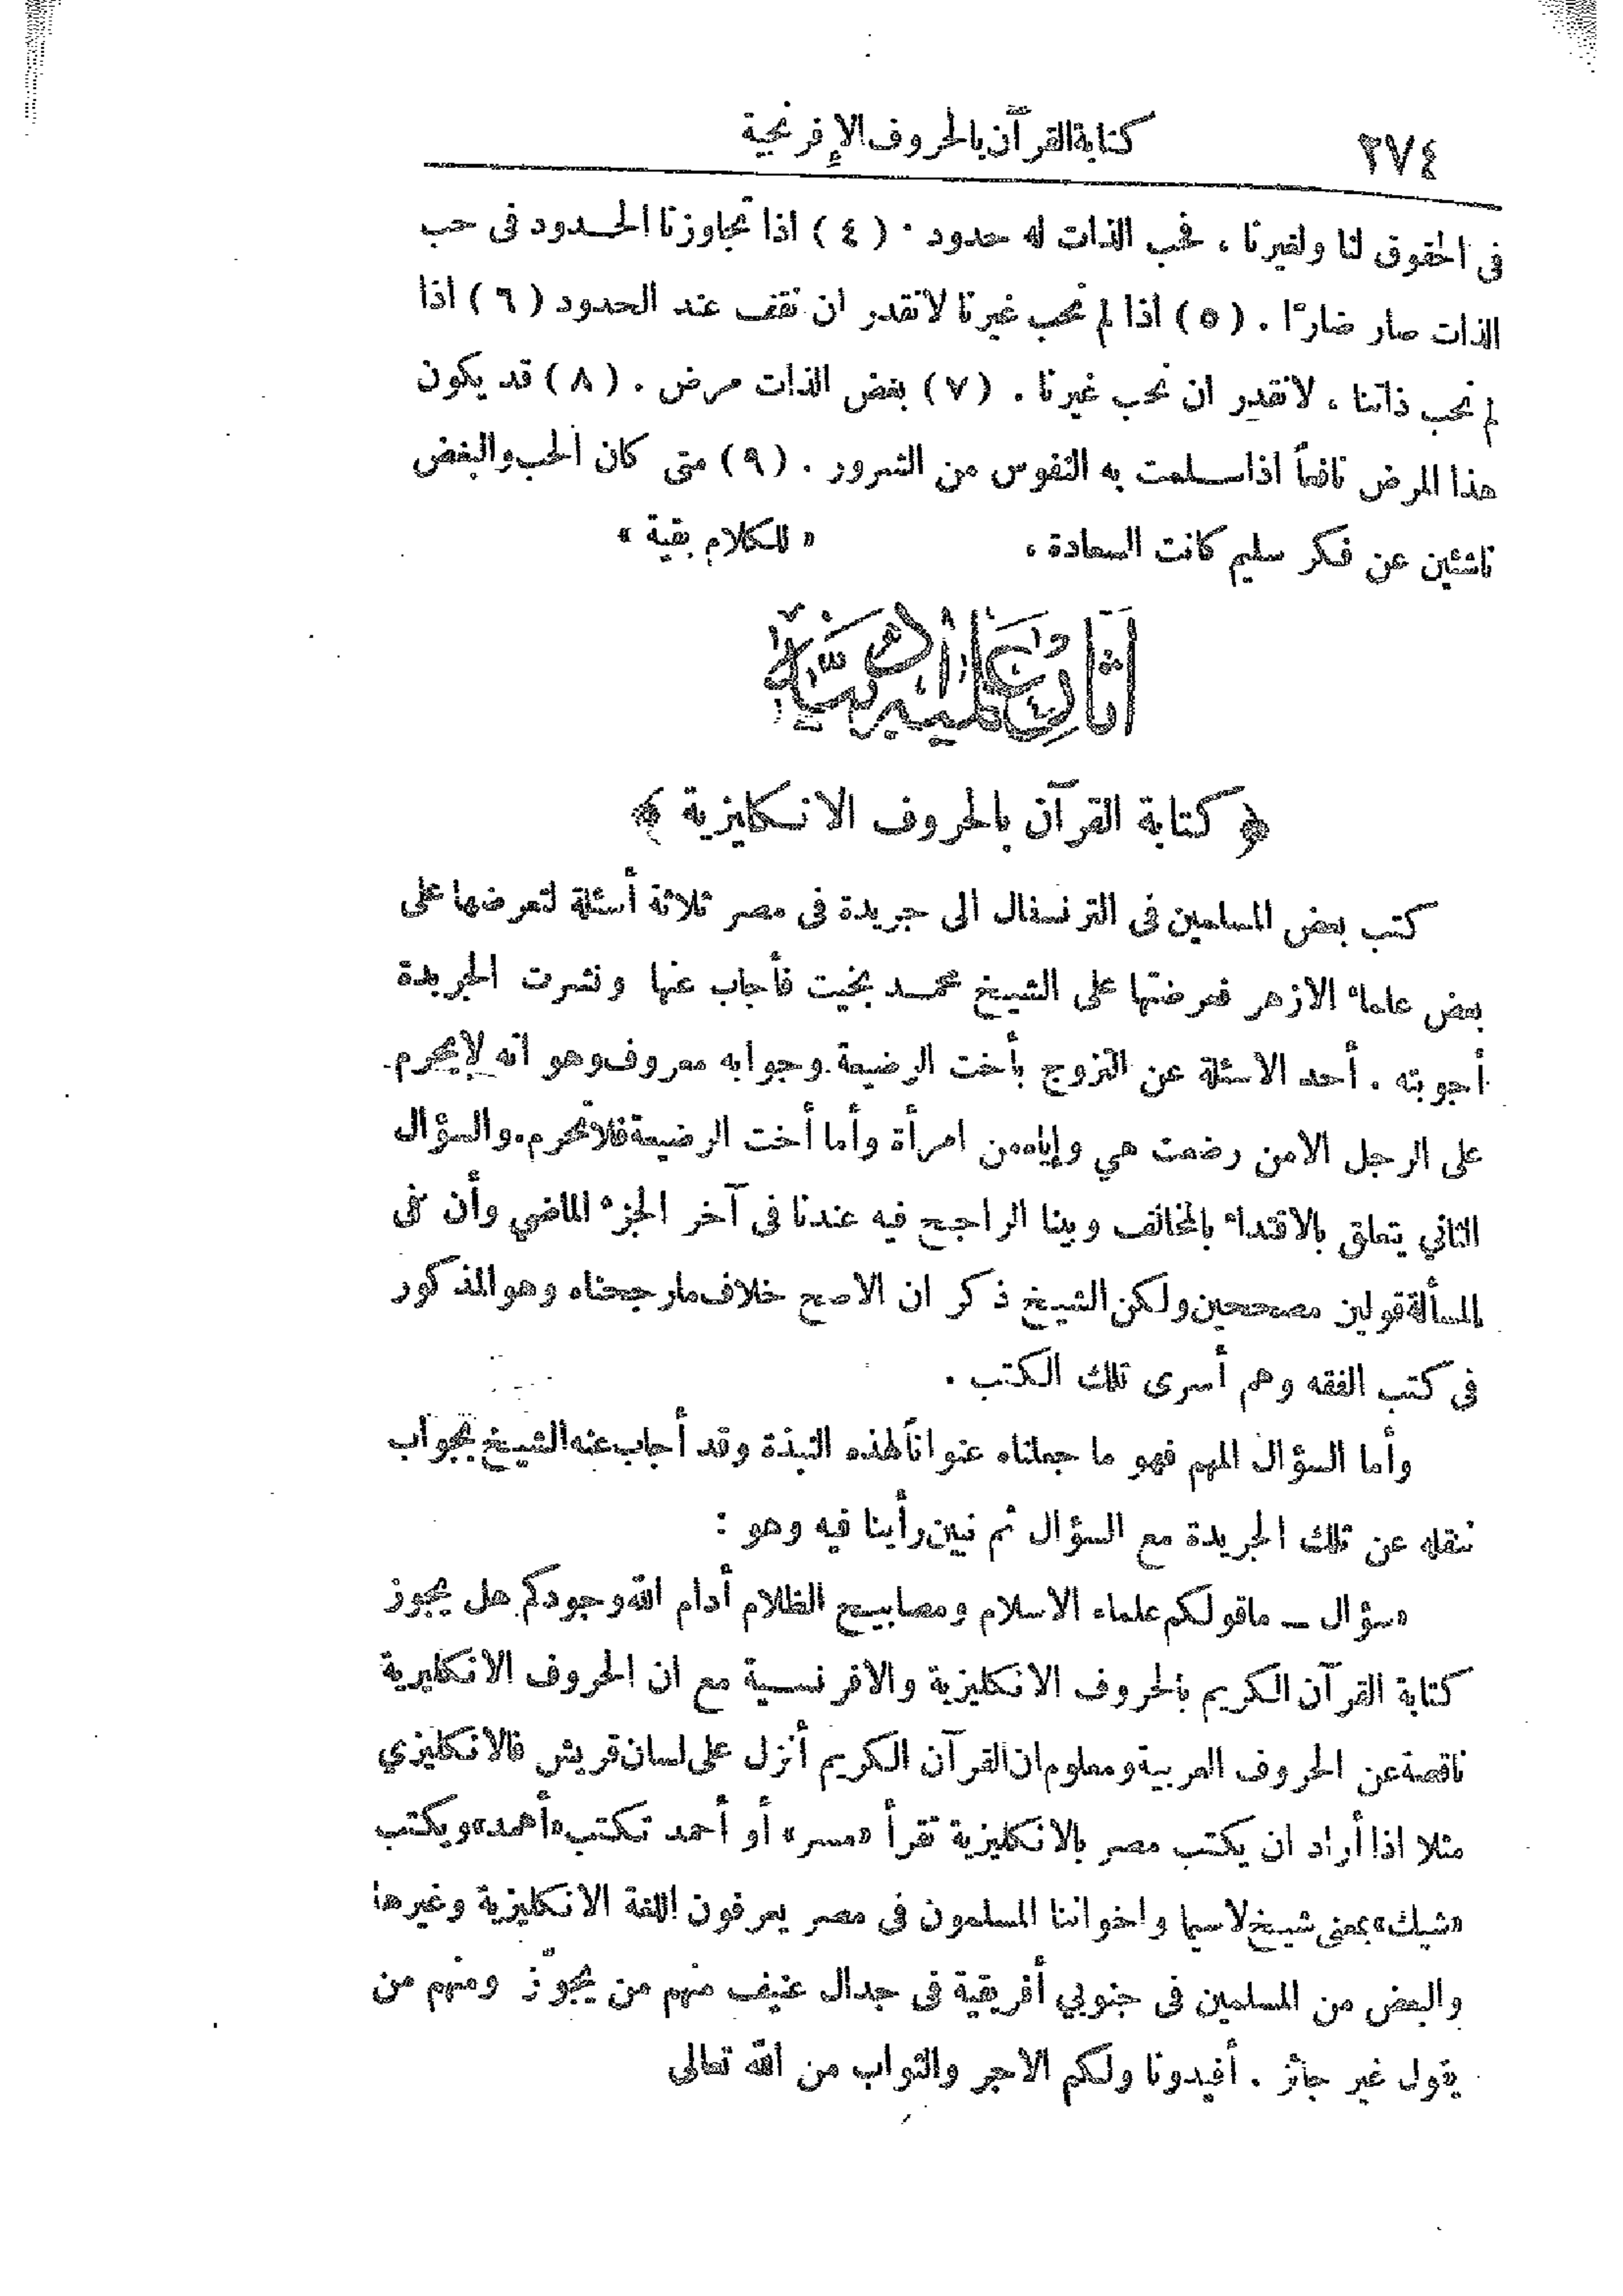 ٢٧٤ كتابة القرآن بالحروف الإفرنجية
فى الحقوق لنا ولغيرنا ، فحب الذات له حدود . ( ٤ ) اذا تجاوزنا الحدود فى حب
الذات صار ضارًا . ( ٥ ) اذا لم نحب غيرنا لانقدر ان نقف عند الحدود ( ٦ ) اذا
لم نحب ذاتنا ، لانقدر ان نحب غيرنا . ( ٧ ) بغض الذات مرض . ( ٨ ) قد يكون
هذا المرض نافعاً اذا سلمت به النفوس من الشرور . ( ٩ ) متى كان الحب والبغض
ناشئين عن فكر سليم كانت السعادة ، « للكلام بقية »
﴿ كتابة القرآن بالحروف الانكليزية ﴾
كتب بعض المسلمين فى الترنسفال الى جريدة فى مصر ثلاثة أسئلة لتعرضها على
بعض علماء الازهر فعرضتها على الشيخ محمد بخيت فأجاب عنها ونشرت الجريدة
أجوبته . أحد الاسئلة عن التزوج بأخت الرضيعة وجوابه معروف وهو انه لايحرم
على الرجل الامن رضعت هي وإياه من امرأة وأما أخت الرضيعة فلاتحرم . والسؤال
الثاني يتعلق بالاقتداء بالمخالف وبينا الراجح فيه عندنا فى آخر الجزء الماضي وأن فى
المسألة قولين مصححين ولكن الشيخ ذكر ان الاصح خلاف مارجحناه وهو المذكور
فى كتب الفقه وهم أسرى تلك الكتب .
وأما السؤال المهم فهو ما جعلناه عنواناً لهذه النبذة وقد أجاب عنه الشيخ بجواب
ننقله عن تلك الجريدة مع السؤال ثم نبين رأينا فيه وهو :
«سؤال ــ ماقولكم علماء الاسلام ومصابيح الظلام أدام الله وجودكم هل يجوز
كتابة القرآن الكريم بالحروف الانكليزية والافرنسية مع ان الحروف الانكليزية
ناقصة عن الحروف العربية ومعلوم ان القرآن الكريم أنزل على لسان قريش فالانكليزي
مثلا اذا أراد ان يكتب مصر بالانكليزية تقرأ «مسر» أو أحمد تكتب «أهمد» ويكتب
«شيك» بمعنى شيخ لاسيما واخواننا المسلمون فى مصر يعرفون اللغة الانكليزية وغيرها
والبعض من المسلمين فى جنوبي أفريقية فى جدال عنيف منهم من يجوّز ومنهم من
يقول غير جائز . أفيدونا ولكم الاجر والثواب من الله تعالى